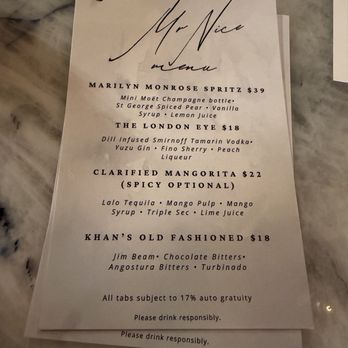 Mr Nice
menu
MARILYN MONROSE SPRITZ $39
Mini Moët Champagne bottle•
St George Spiced Pear • Vanilla
Syrup • Lemon Juice
THE LONDON EYE $18
Dill infused Smirnoff Tamarin Vodka•
Yuzu Gin • Fino Sherry • Peach
Liqueur
CLARIFIED MANGORITA $22
(SPICY OPTIONAL)
Lalo Tequila • Mango Pulp • Mango
Syrup • Triple Sec • Lime Juice
KHAN'S OLD FASHIONED $18
Jim Beam• Chocolate Bitters•
Angostura Bitters • Turbinado
All tabs subject to 17% auto gratuity
Please drink responsibly.
Please drink responsibly.